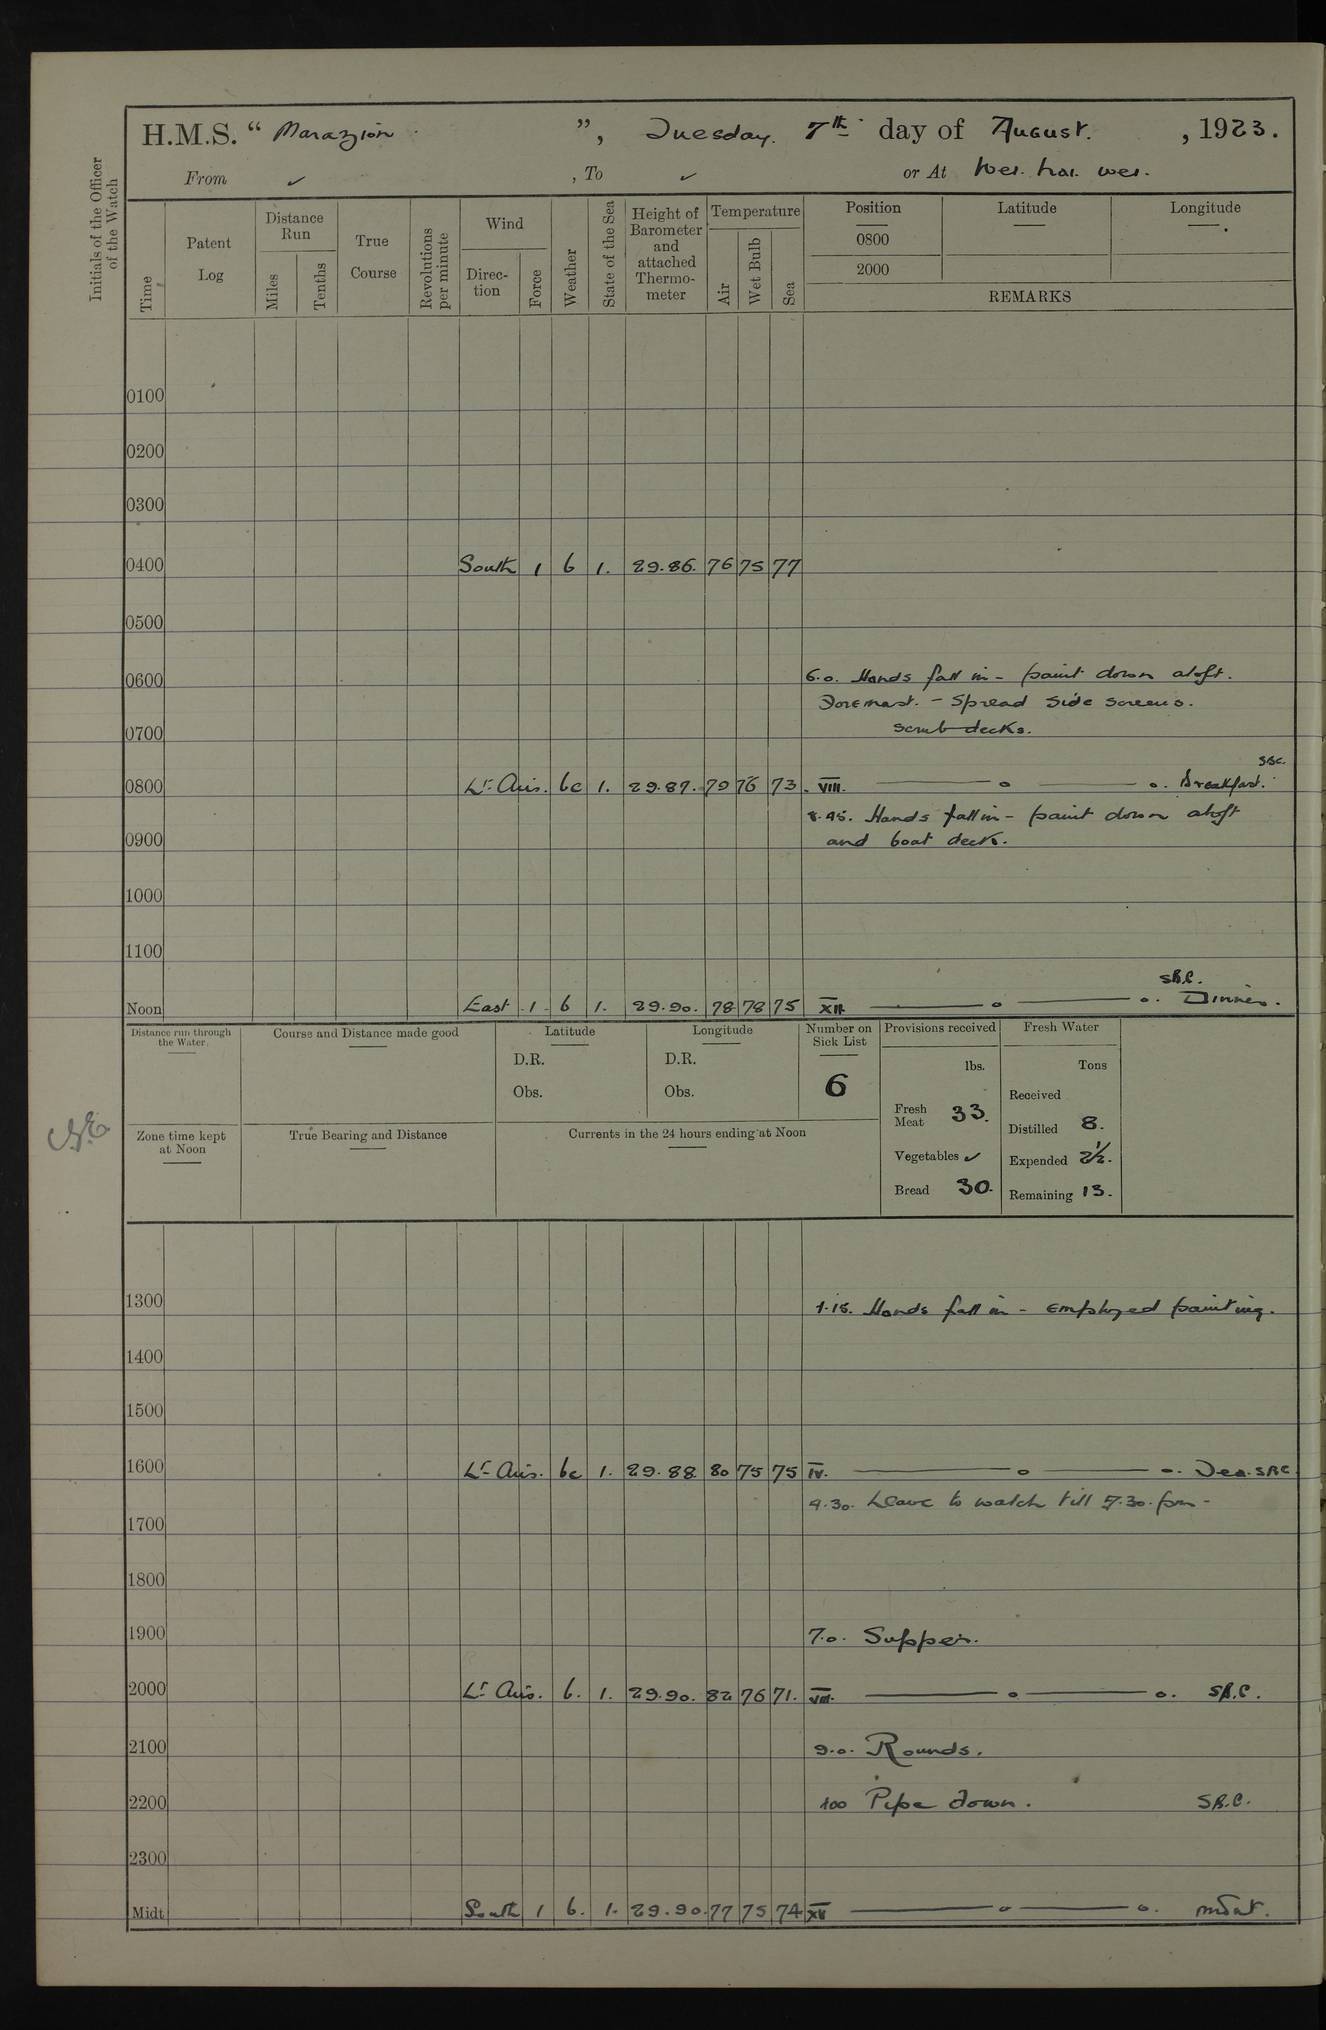 H.M.S. “ Marazion ”, Tuesday. 7th day of August. , 1923.
From ✓ , To ✓ or At Wei. hai. wei.
Initials of the Officer of the Watch
Time
Patent Log
Distance Run
Miles
Tenths
True Course
Revolutions per minute
Wind
Direc-tion
Force
Weather
State of the Sea
Height of Barometer and attached Thermo-meter
Temperature
Air
Wet Bulb
Sea
Position
0800
2000
Latitude
Longitude
REMARKS
0100
0200
0300
0400 South 1 b 1. 29.86. 76 75 77
0500
0600 6.0. Hands fall in - paint down aloft.
Foremast. - Spread side screens.
0700 scrub decks.
SBC.
0800 Lt Airs. bc 1. 29.87. 79 76 73 VIII. o o. Breakfast.
8.45. Hands fall in - paint down aloft
0900 and boat deck.
1000
1100
SBC.
Noon East 1 b 1. 29.90. 78 78 75 XII. o o. Dinner.
Distance run through the Water.
Course and Distance made good
Latitude
D.R.
Obs.
Longitude
D.R.
Obs.
Number on Sick List
6
Provisions received
lbs.
Fresh Meat 33.
Vegetables ✓
Bread 30.
Fresh Water
Tons
Received
Distilled 8.
Expended 2½.
Remaining 13.
Zone time kept at Noon
True Bearing and Distance
Currents in the 24 hours ending at Noon
1300 1.15. Hands fall in - employed painting.
1400
1500
1600 Lt Airs. bc 1. 29.88 80 75 75 IV. o o. Tea. SBC
4.30. Leave to watch till 7.30. pm -
1700
1800
1900 7.0. Supper.
2000 Lt Airs. b. 1. 29.90. 82 76 71. VIII. o o. SBC.
2100 9.0. Rounds.
2200 100 Pipe down. SBC.
2300
Midt South 1 b. 1. 29.90. 77 75 74 XII o o.